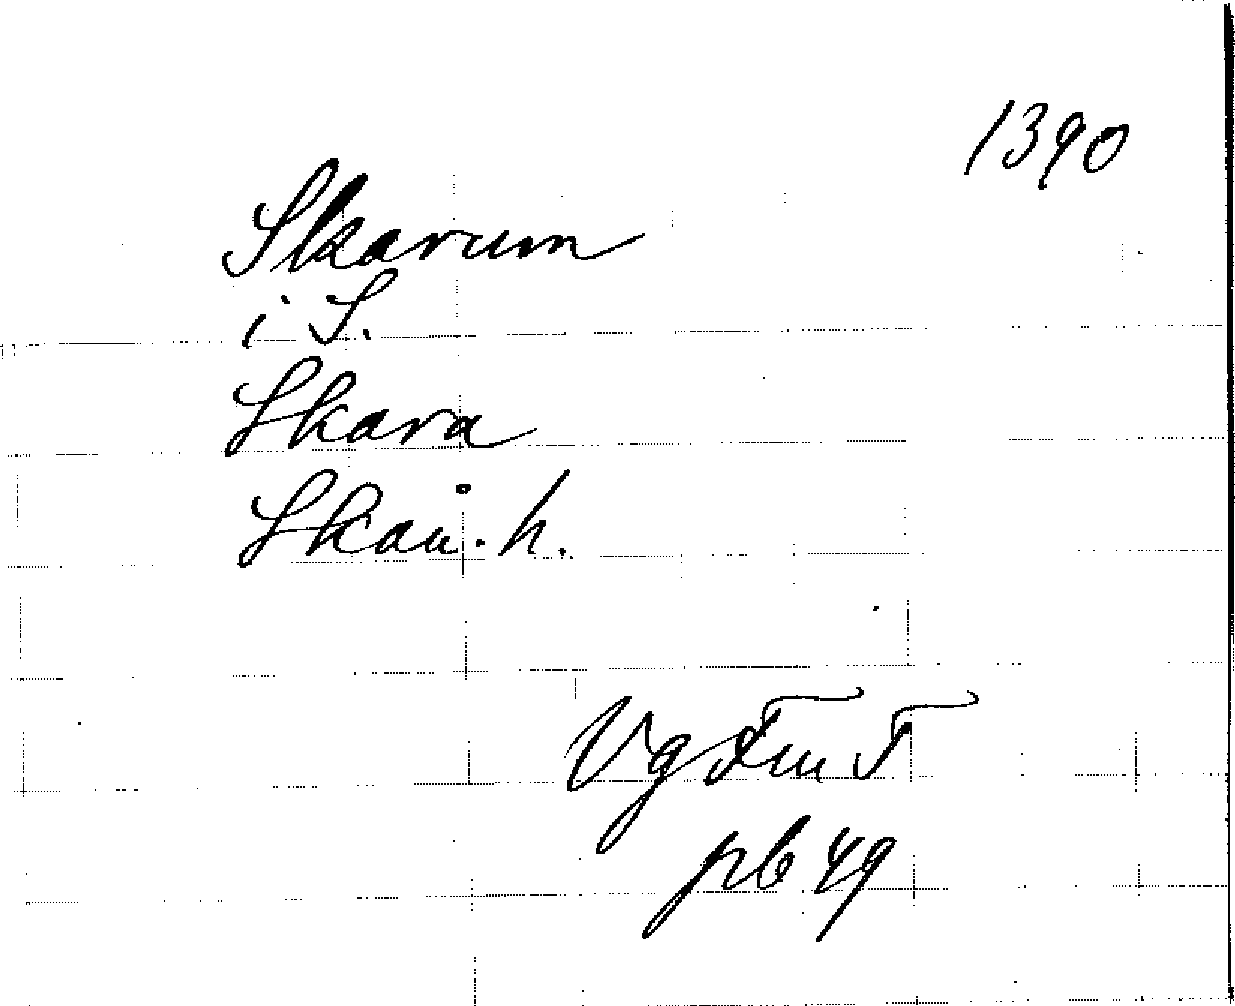 1390
Skarum
i S.
Skara
Skån. h.
Vg Fm T
pb 49